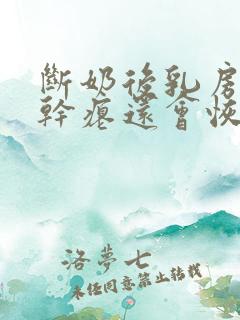 斷奶後乳房
幹癟還會恢
洛夢七
未經同意禁止轉載